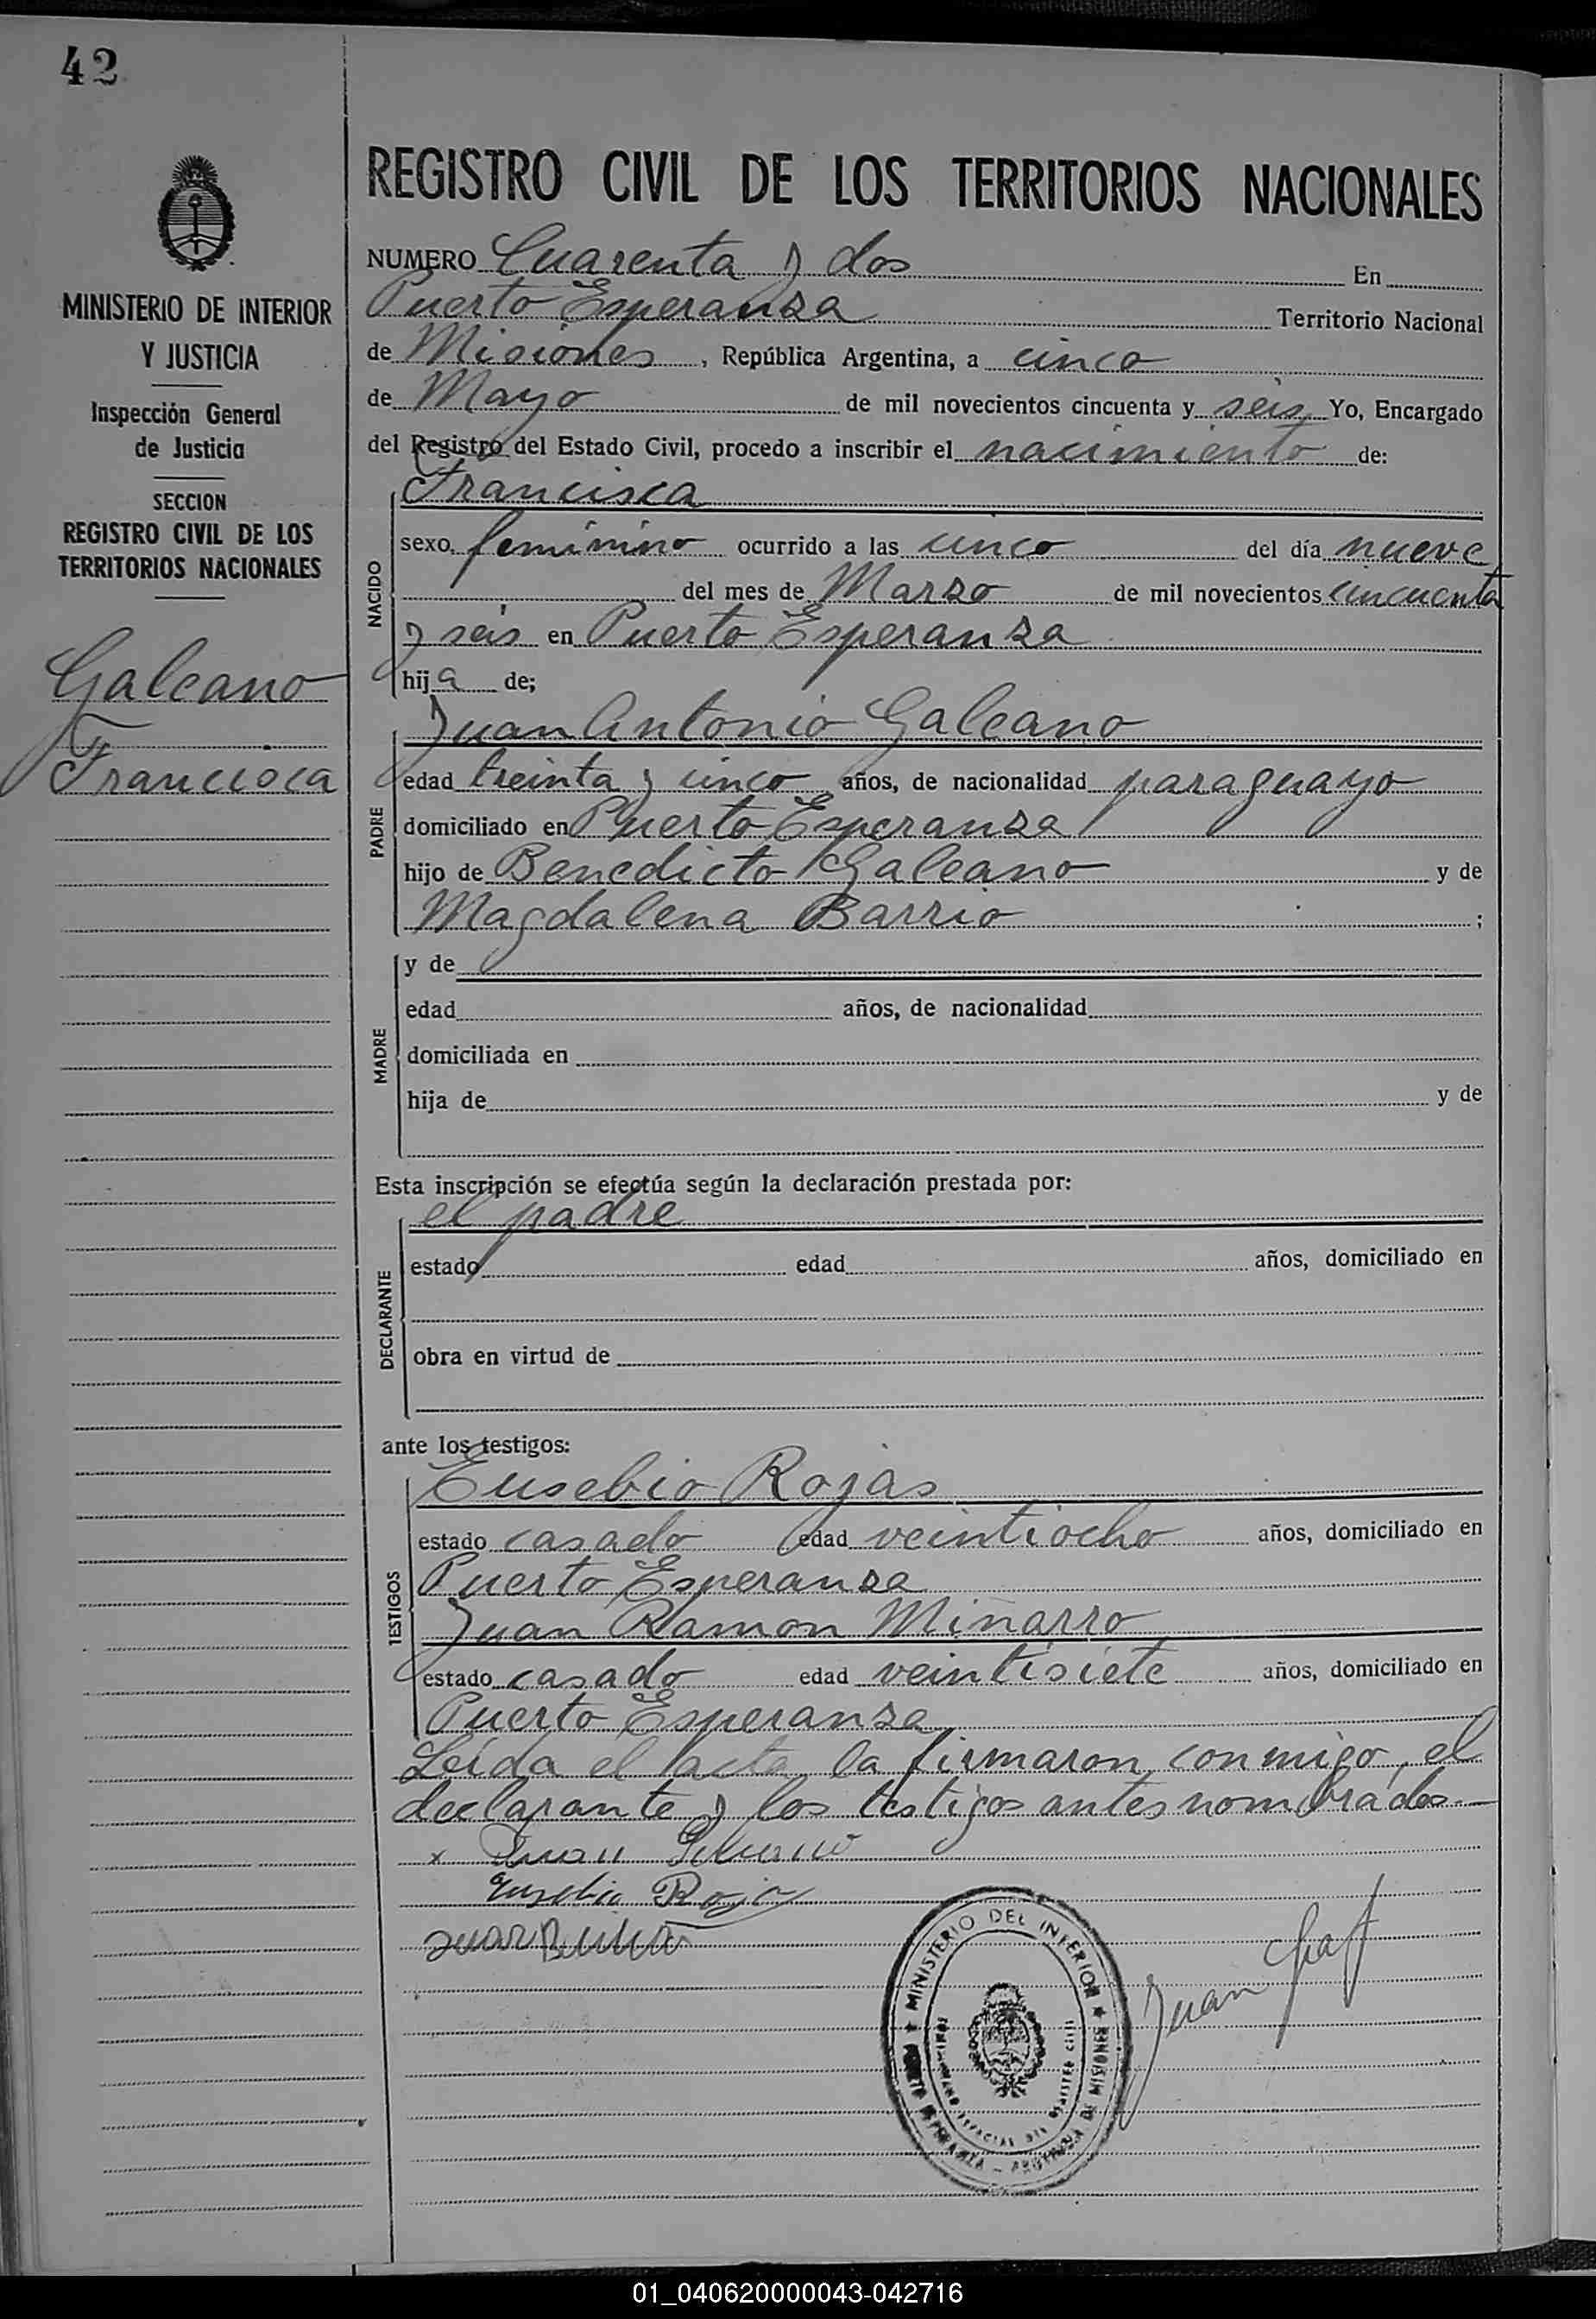 42
MINISTERIO DE INTERIOR
Y JUSTICIA
Inspección General
de Justicia
SECCION
REGISTRO CIVIL DE LOS
TERRITORIOS NACIONALES
Galeano
Francisca
REGISTRO CIVIL DE LOS TERRITORIOS NACIONALES
NUMERO Cuarenta y dos En
Puerto Esperanza Territorio Nacional
de Misiones, República Argentina, a cinco
de Mayo de mil novecientos cincuenta y seis Yo, Encargado
del Registro del Estado Civil, procedo a inscribir el nacimiento de:
NACIDO
Francisca
sexo femenino ocurrido a las cinco del día nueve
del mes de Marzo de mil novecientos cincuenta
y seis en Puerto Esperanza
hija de;
PADRE
Juan Antonio Galeano
edad treinta y cinco años, de nacionalidad paraguayo
domiciliado en Puerto Esperanza
hijo de Benedicto Galeano y de
Magdalena Barrio ;
MADRE
y de
edad años, de nacionalidad
domiciliada en
hija de y de
Esta inscripción se efectúa según la declaración prestada por:
DECLARANTE
el padre
estado edad años, domiciliado en
obra en virtud de
ante los testigos:
TESTIGOS
Eusebio Rojas
estado casado edad veintiocho años, domiciliado en
Puerto Esperanza
Juan Ramon Minarro
estado casado edad veintisiete años, domiciliado en
Puerto Esperanza
Leida el acta, la firmaron conmigo, el
declarante y los testigos antes nombrados.—
x Juan
Eusebio Rojas
Juan
Juan Graf
MINISTERIO DEL INTERIOR
PUERTO ESPERANZA - PROVINCIA DE MISIONES
01_040620000043-042716